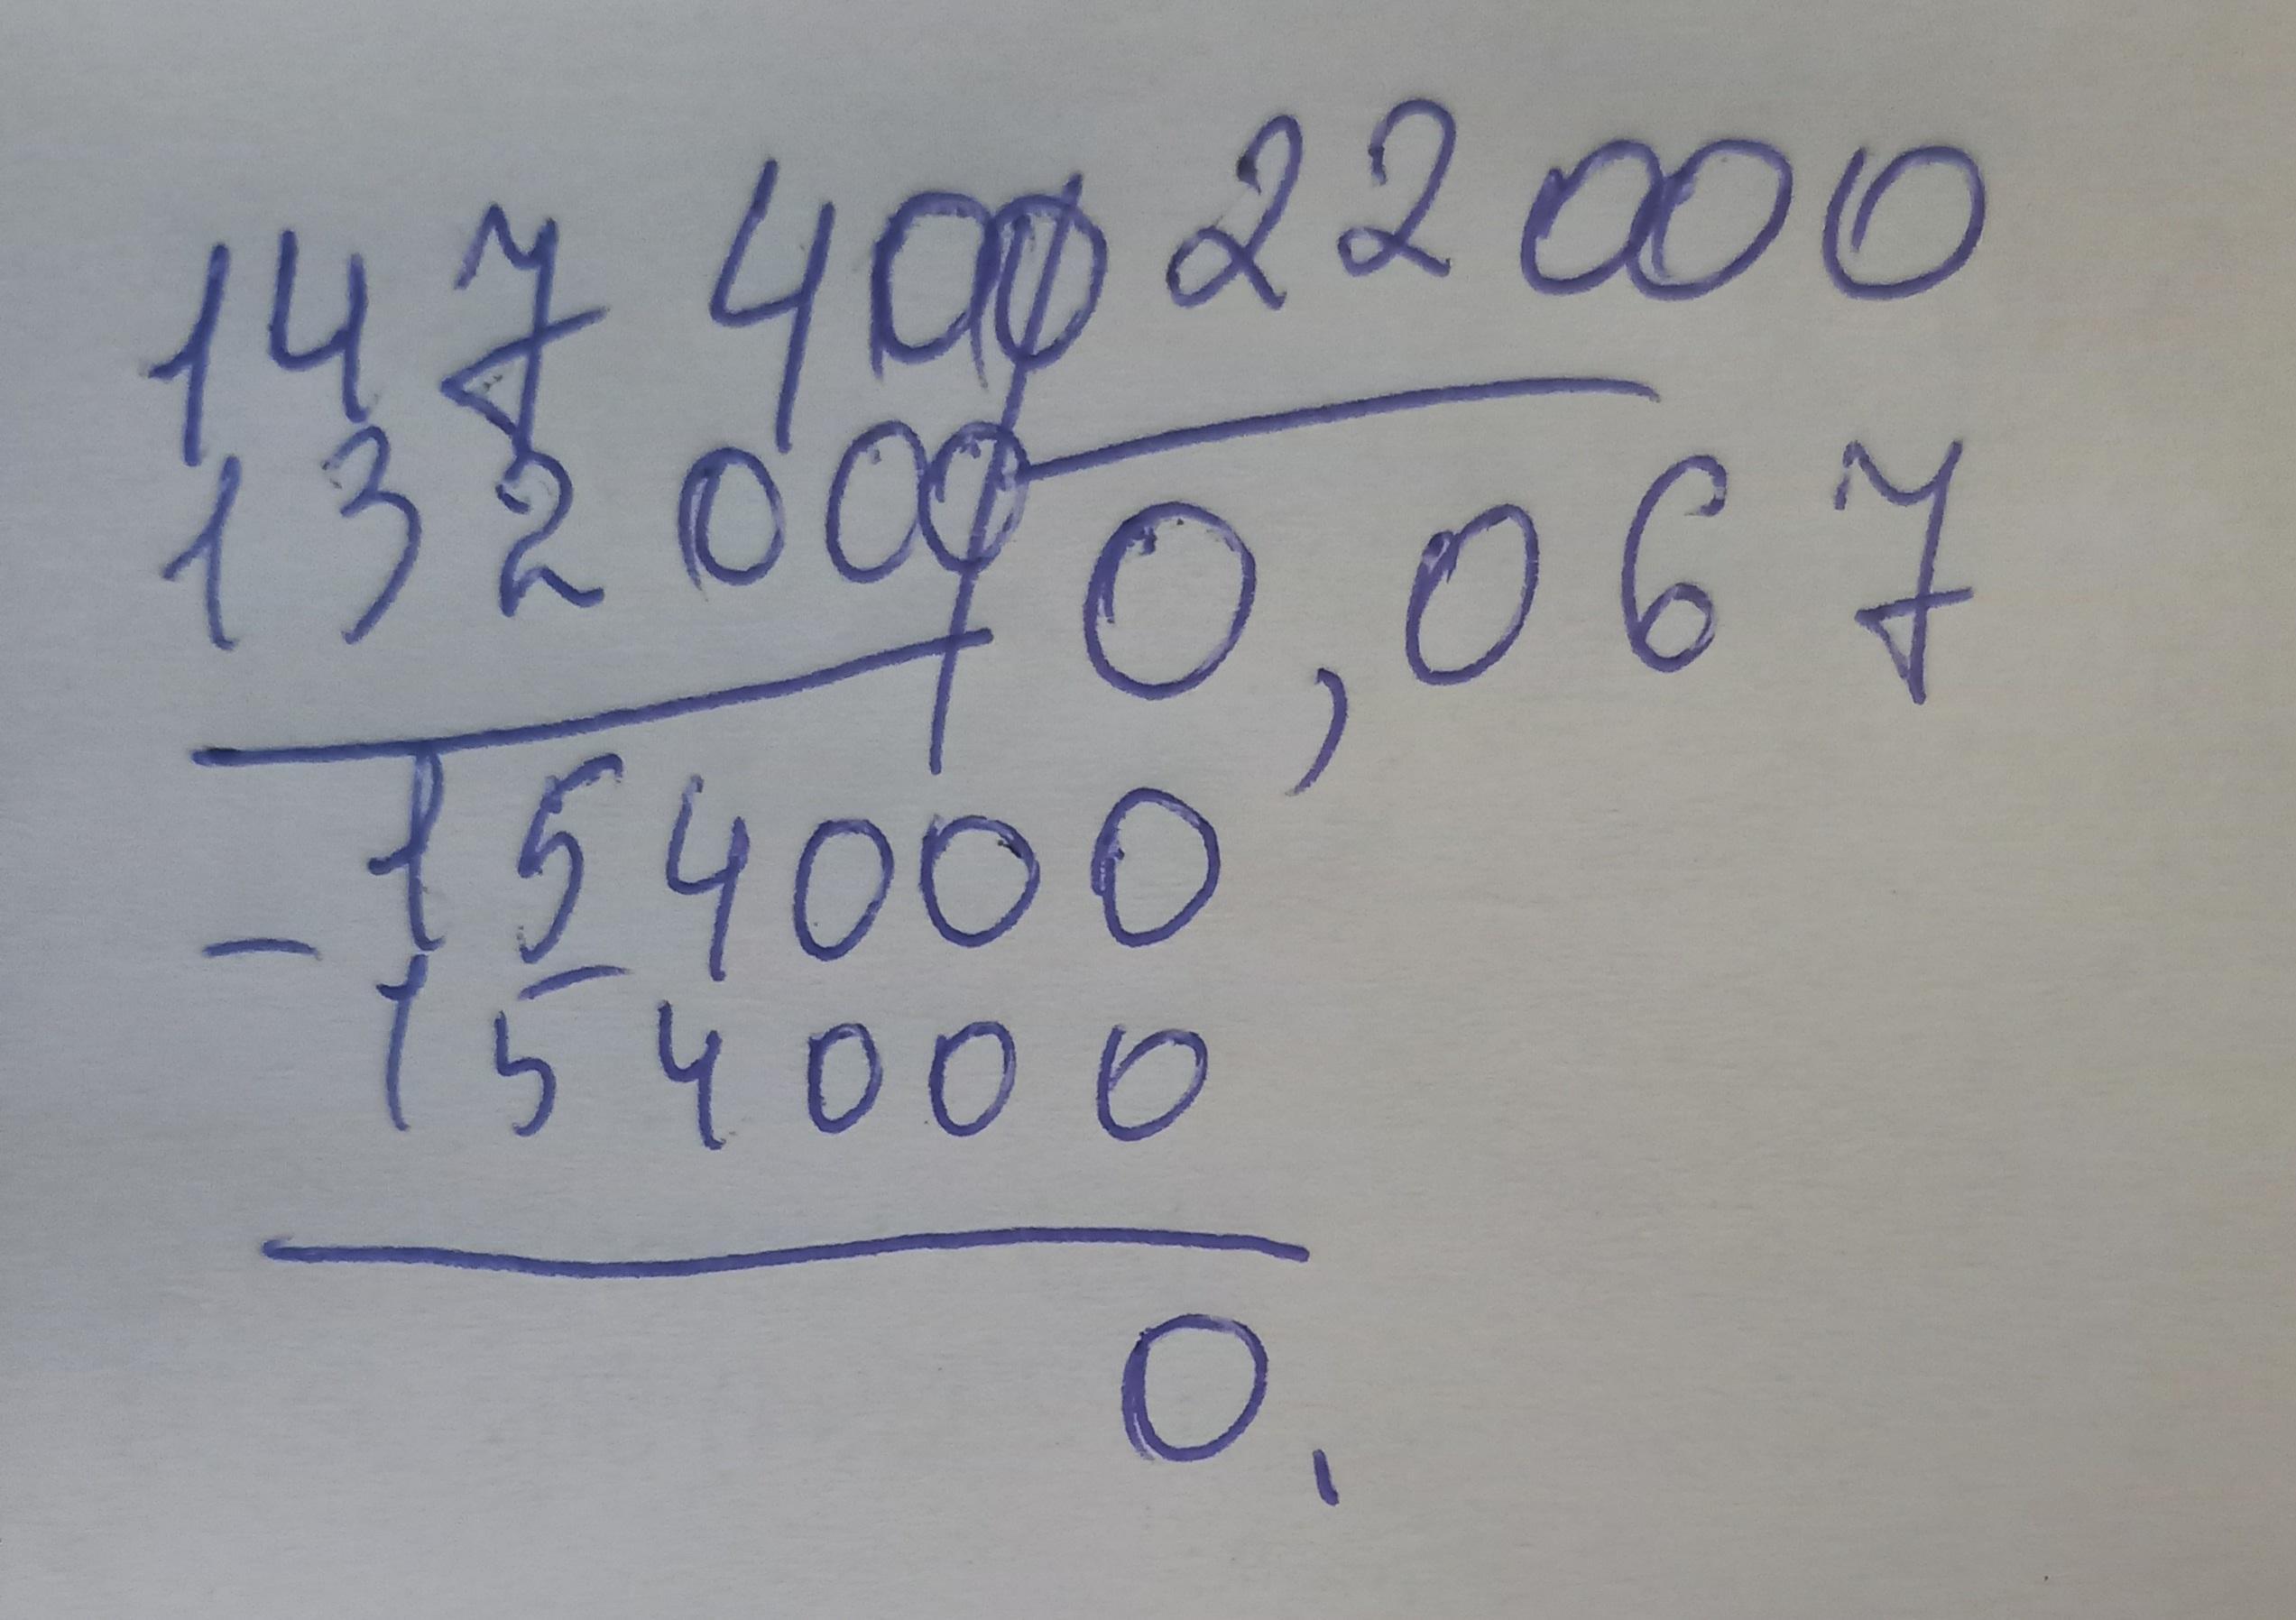 147 400 22000
132000 0,067
- 154000
154000
0.